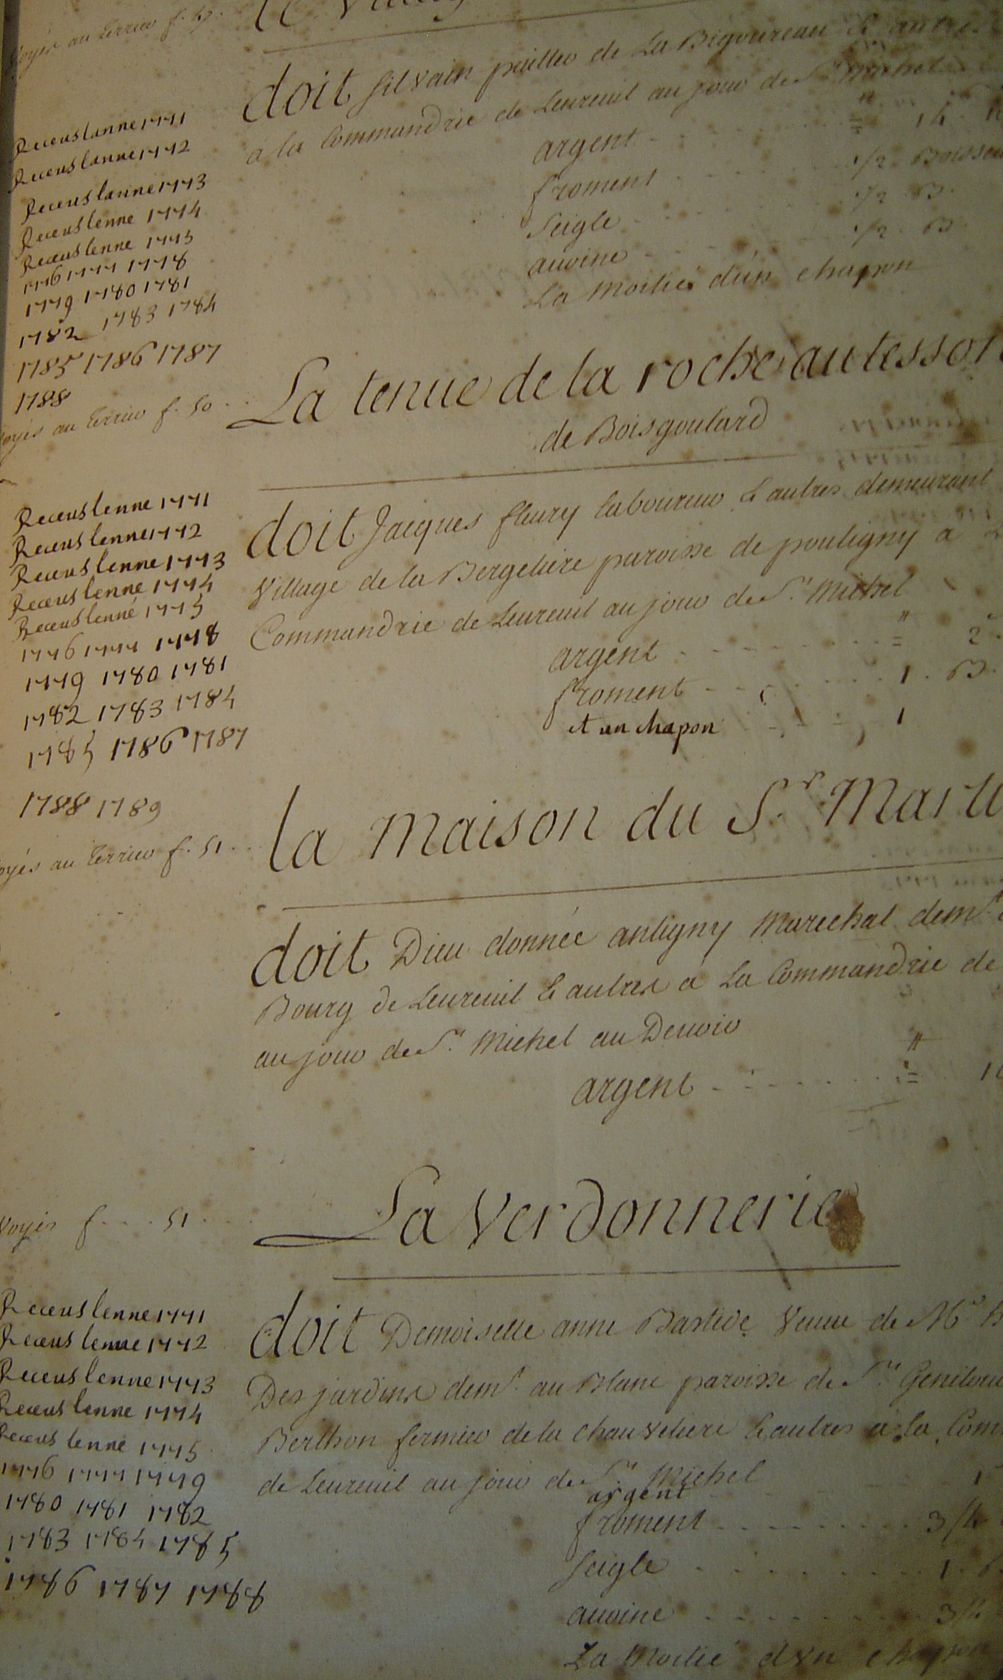 Voyés au terrier f. 49.
doit Silvain pailler de La Bigourreau & autres
a la Commandrie de Leureuil au jour de St. Michel
Receus lanne 1771
Receus lanne 1772
Receus lanne 1773
Receus lenne 1774
Receus lenne 1775
1776 1777 1778
1779 1780 1781
1782 1783 1784
1785 1786 1787
1788
argent
froment 1/2 Boisseau
Seigle 1/2 B.
auoine 1/2 B.
La moitié d'un chapon
Voyés au terrier f. 50
La tenue de la roche autesson
de Boisgoulard
Receus lenne 1771
Receus lenne 1772
Receus lenne 1773
Receus lenne 1774
Receus lenne 1775
1776 1777 1778
1779 1780 1781
1782 1783 1784
1785 1786 1787
1788 1789
doit Jacques fleury laboureur & autres demeurant
Village de la Bergeliere paroisse de pouligny a
Commandrie de Leureuil au jour de St. Michel
argent 2
froment 1. B.
et un chapon 1
Voyés au terrier f. 51
la maison du Sr. Marti
doit Dieu donnée antigny Marechal demt.
Bourg de Leureuil & autres a La Commandrie de
au jour de St. Michel au Deuoir
argent
Voyés f. 51
La Verdonnerie
Receus lenne 1771
Receus lenne 1772
Receus lenne 1773
Receus lenne 1774
Receus lenne 1775
1776 1777 1779
1780 1781 1782
1783 1784 1785
1786 1787 1788
doit Demoiselle anne Bastide Veuue de Mr.
Des jardins demt. au Blanc paroisse de St. Genitour
Berthon fermier de la Chauveliere & autres a la Com
de Leureuil au jour de St. Michel
argent 1
froment 3/4
Seigle 1
auoine 3/4
La Moitié d'vn chapon